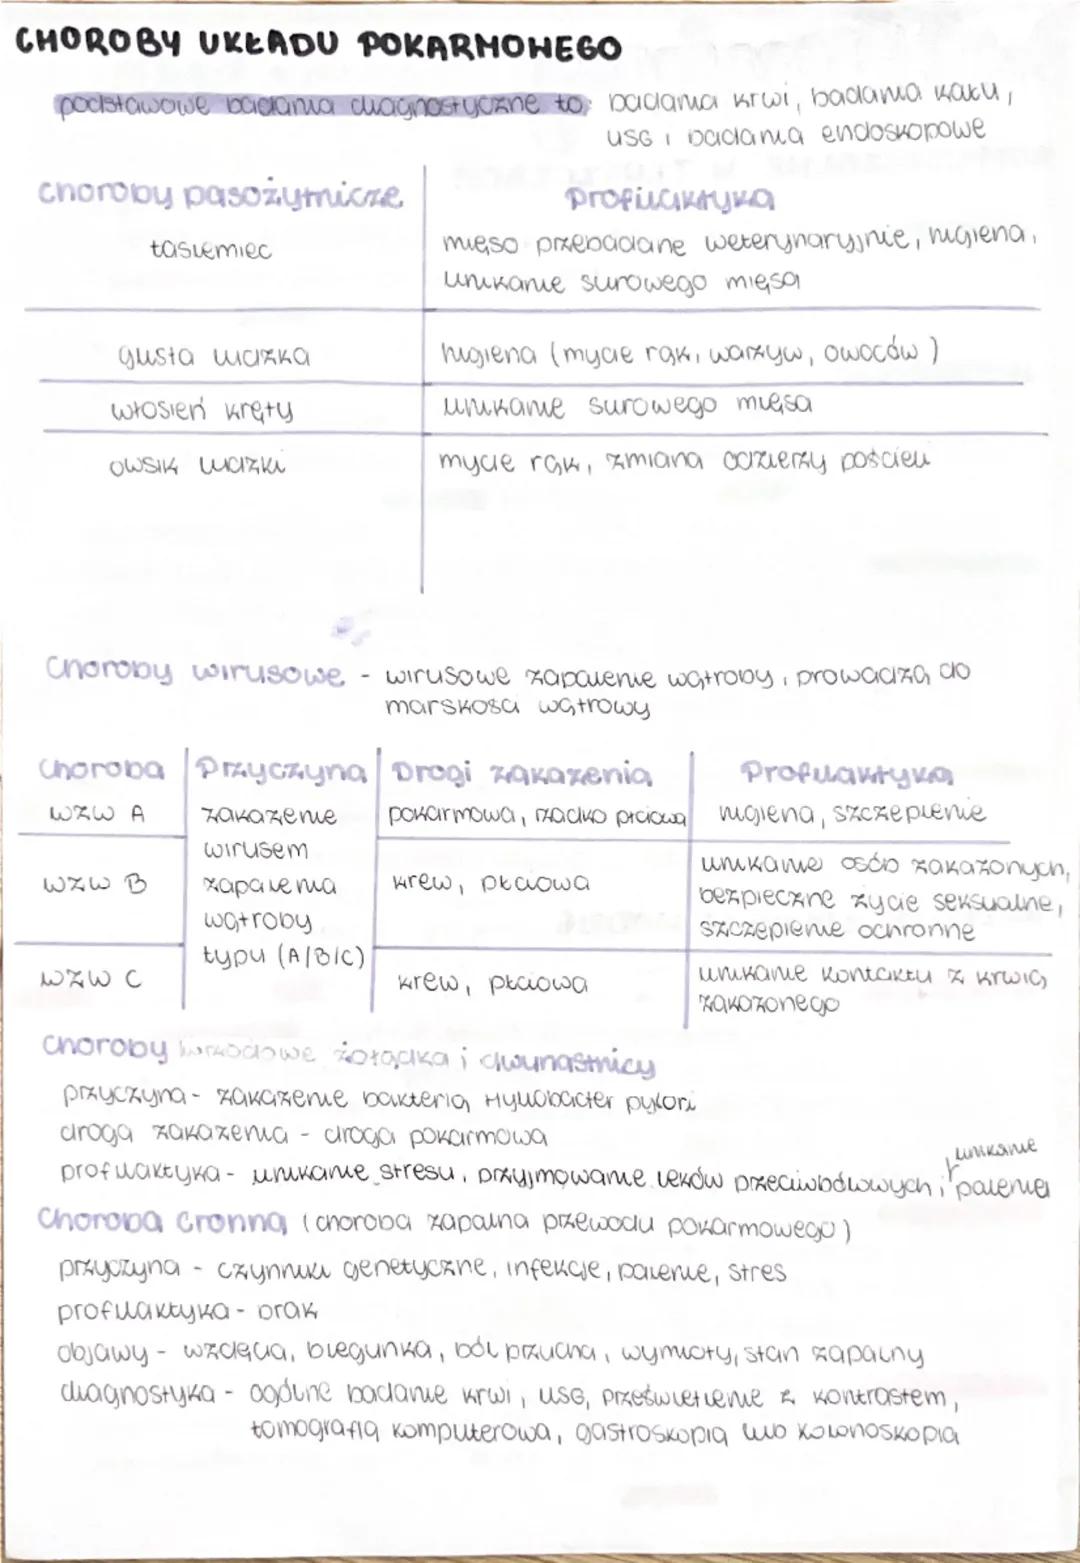 CHOROBY UKŁADU POKARMOWEGO
podstawowe badania diagnostyczne to: badania krwi, badania kału,
USG i badania endoskopowe
choroby pasożytnicze profilaktyka
tasiemiec mięso przebadane weterynaryjnie, higiena,
unikanie surowego mięsa
glista ludzka higiena (mycie rąk, warzyw, owoców)
włosień kręty unikanie surowego mięsa
owsik ludzki mycie rąk, zmiana odzierzy pościeli
Choroby wirusowe - wirusowe zapalenie wątroby, prowadzą do
marskości wątrowy
Choroba Przyczyna Drogi zakażenia Profilaktyka
WZW A zakażenie pokarmowa, rzadko płciowa higiena, szczepienie
wirusem
WZW B zapalenia krew, płciowa unikanie osób zakażonych,
wątroby bezpieczne życie seksualne,
typu (A/B/C) szczepienie ochronne
WZW C krew, płciowa unikanie kontaktu z krwią
zakażonego
Choroby wrzodowe żołądka i dwunastnicy
przyczyna - zakażenie bakterią Hylobacter pylori
droga zakażenia - droga pokarmowa
profilaktyka - unikanie stresu, przyjmowanie leków przeciwbólowych, unikanie palenia
Choroba Cronna (choroba zapalna przewodu pokarmowego)
przyczyna - czynniki genetyczne, infekcje, palenie, stres
profilaktyka - brak
objawy - wzdęcia, biegunka, ból brzucha, wymioty, stan zapalny
diagnostyka - ogólne badanie krwi, USG, prześwietlenie z kontrastem,
tomografia komputerowa, gastroskopia lub kolonoskopia